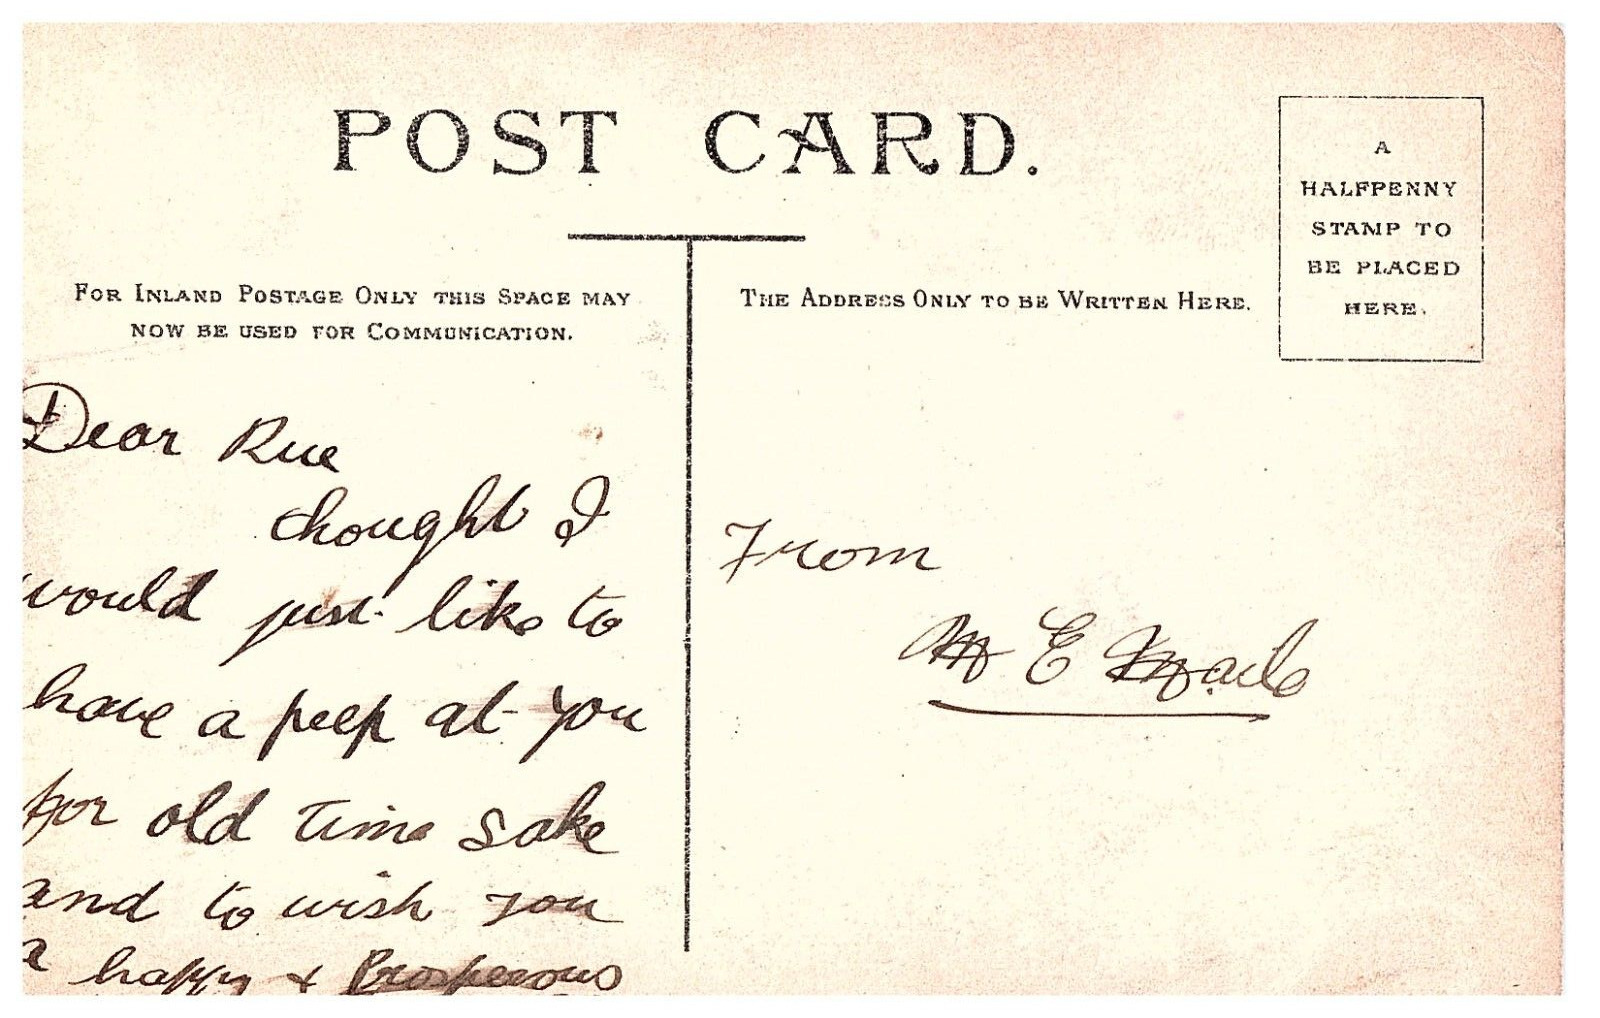 POST CARD.
FOR INLAND POSTAGE ONLY THIS SPACE MAY
NOW BE USED FOR COMMUNICATION.
THE ADDRESS ONLY TO BE WRITTEN HERE.
A
HALFPENNY
STAMP TO
BE PLACED
HERE.
Dear Rue
thought I
would just like to
have a peep at you
for old time sake
and to wish you
a happy + Prosperous
From
M E